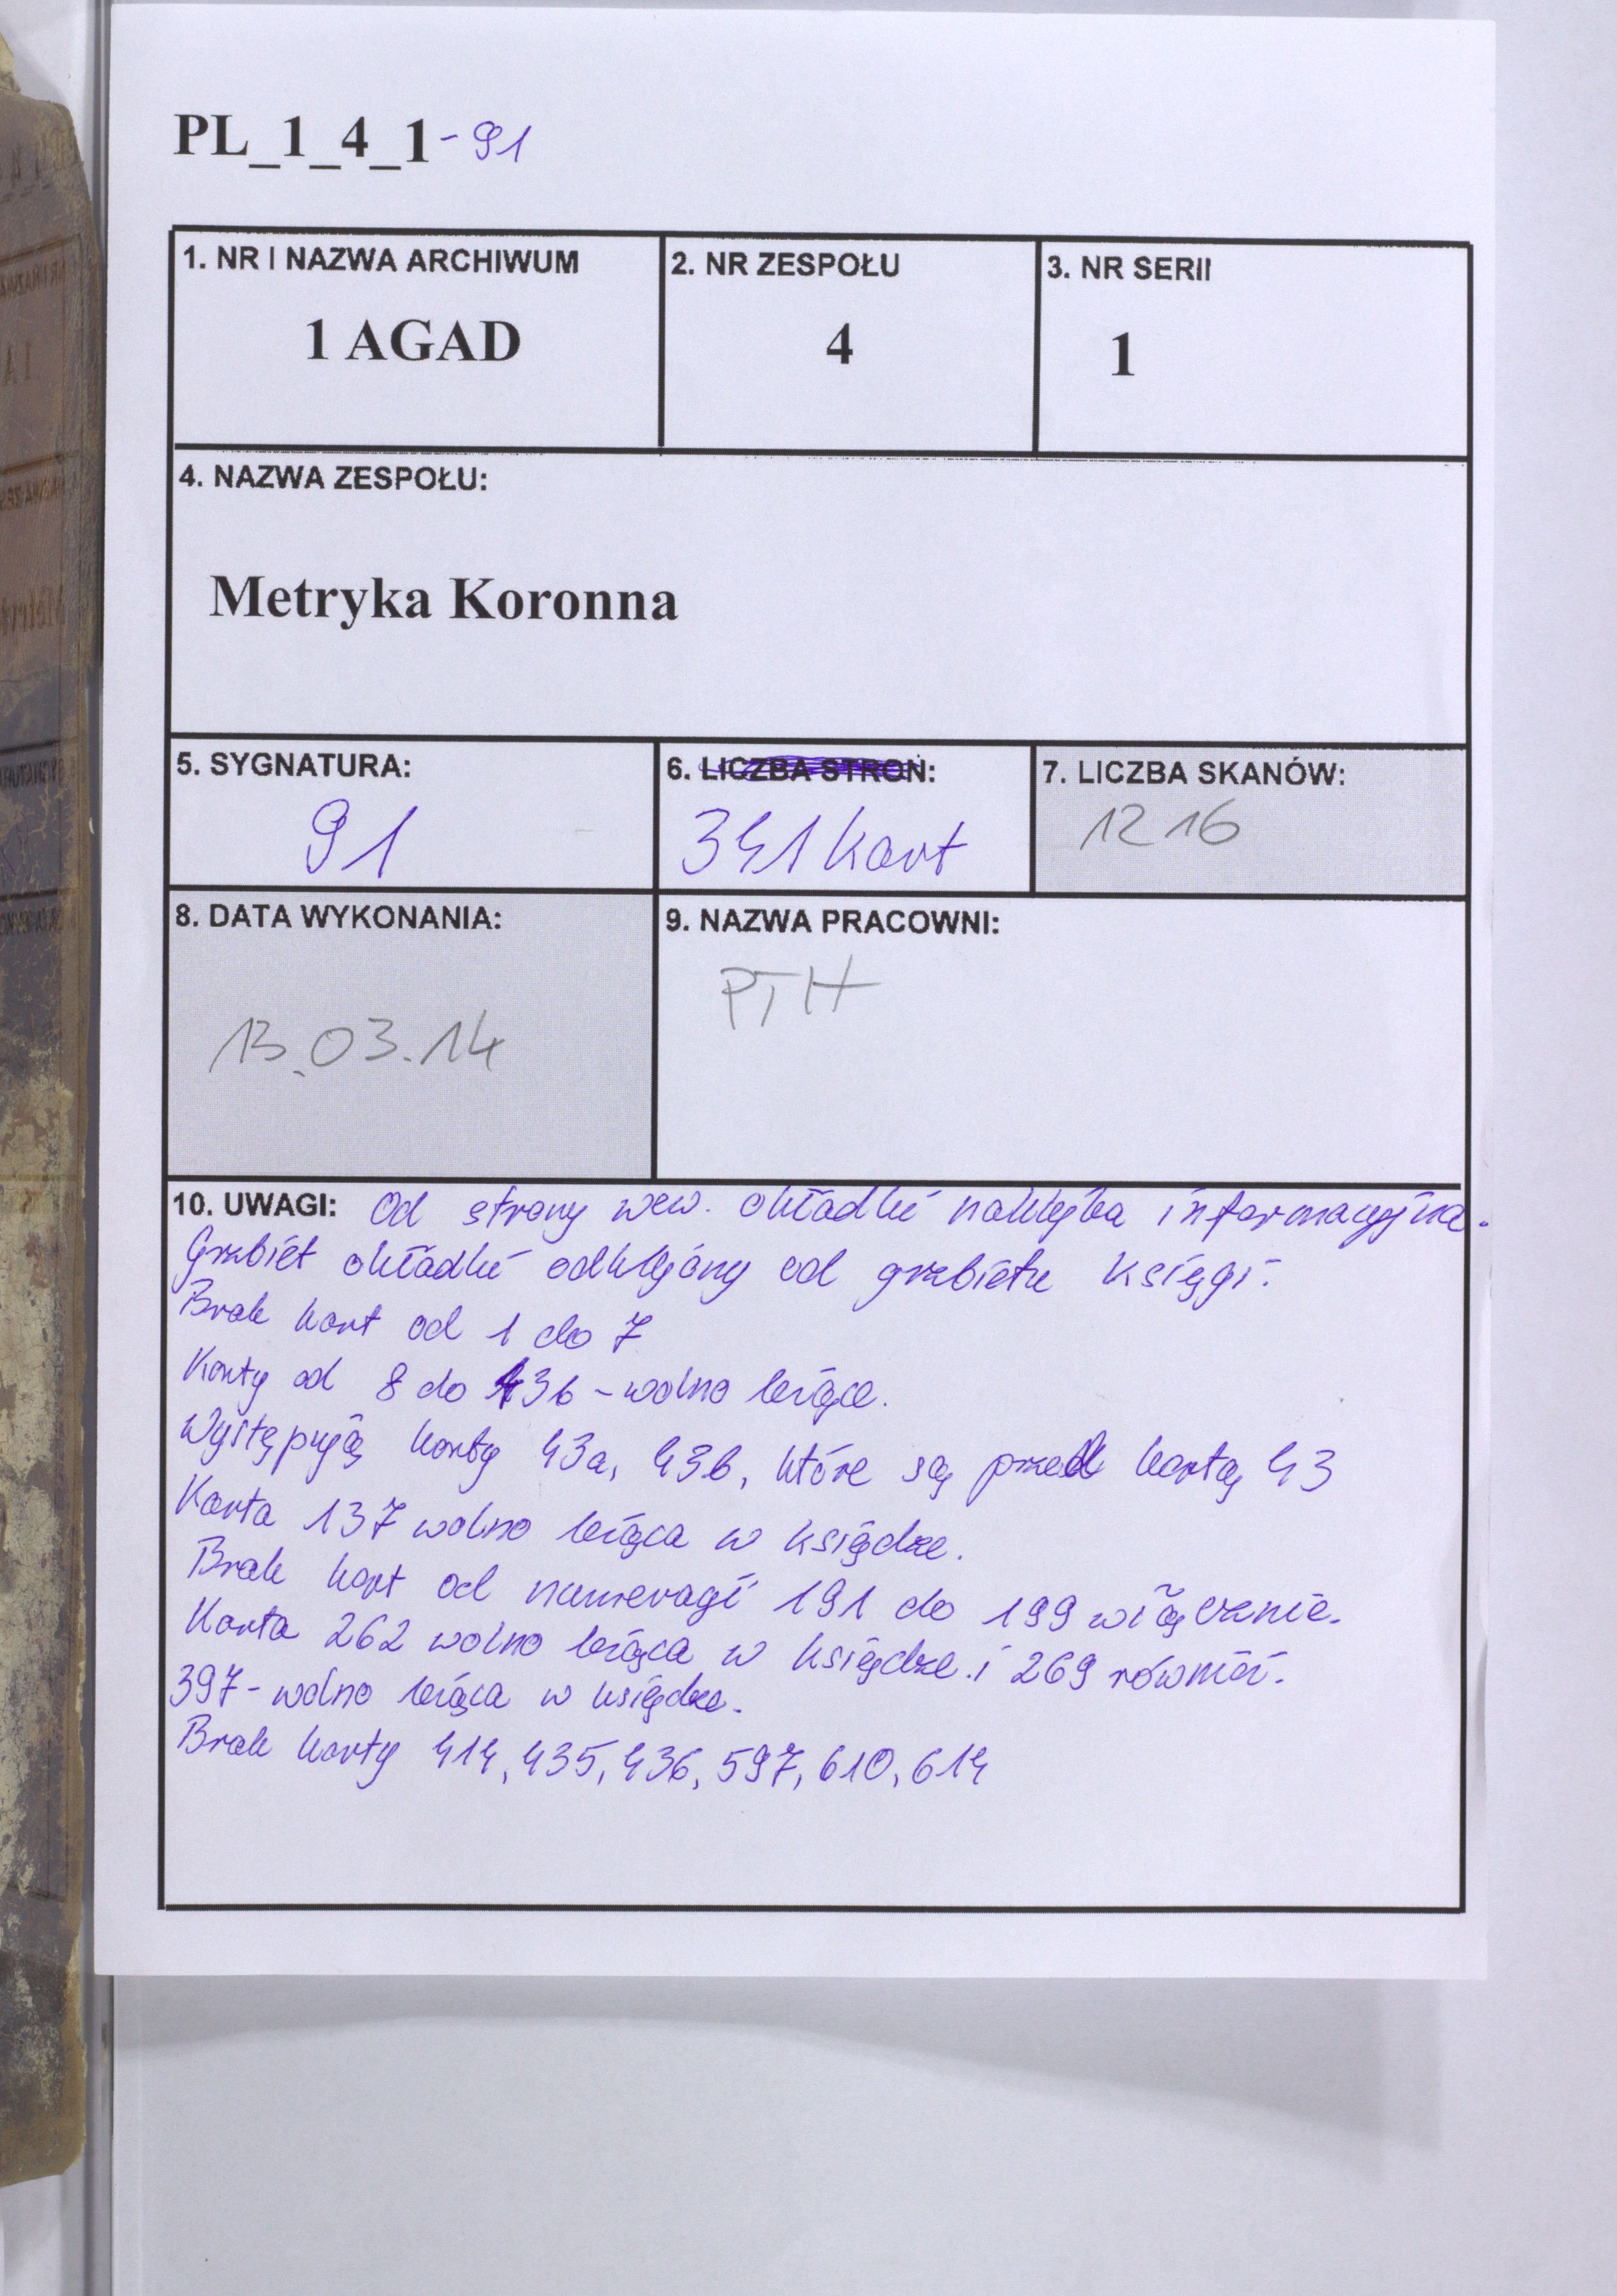 PL_1_4_1-91
1. NR I NAZWA ARCHIWUM
1 AGAD
2. NR ZESPOŁU
4
3. NR SERII
1
4. NAZWA ZESPOŁU:
Metryka Koronna
5. SYGNATURA:
91
6. LICZBA STRON:
341 kart
7. LICZBA SKANÓW:
1216
8. DATA WYKONANIA:
13.03.14
9. NAZWA PRACOWNI:
PTH
10. UWAGI: Od strony wew. okładki naklejka informacyjna.
Grzbiet okładki odklejony od grzbietu księgi.
Brak kart od 1 do 7
Karty od 8 do 43b - wolno leżące.
Występują karty 43a, 43b, które są przed kartą 43
Karta 137 wolno leżąca w księdze.
Brak kart od numeracji 191 do 199 włącznie.
Karta 262 wolno leżąca w księdze i 269 również.
397 - wolno leżąca w księdze.
Brak karty 414, 435, 436, 597, 610, 614